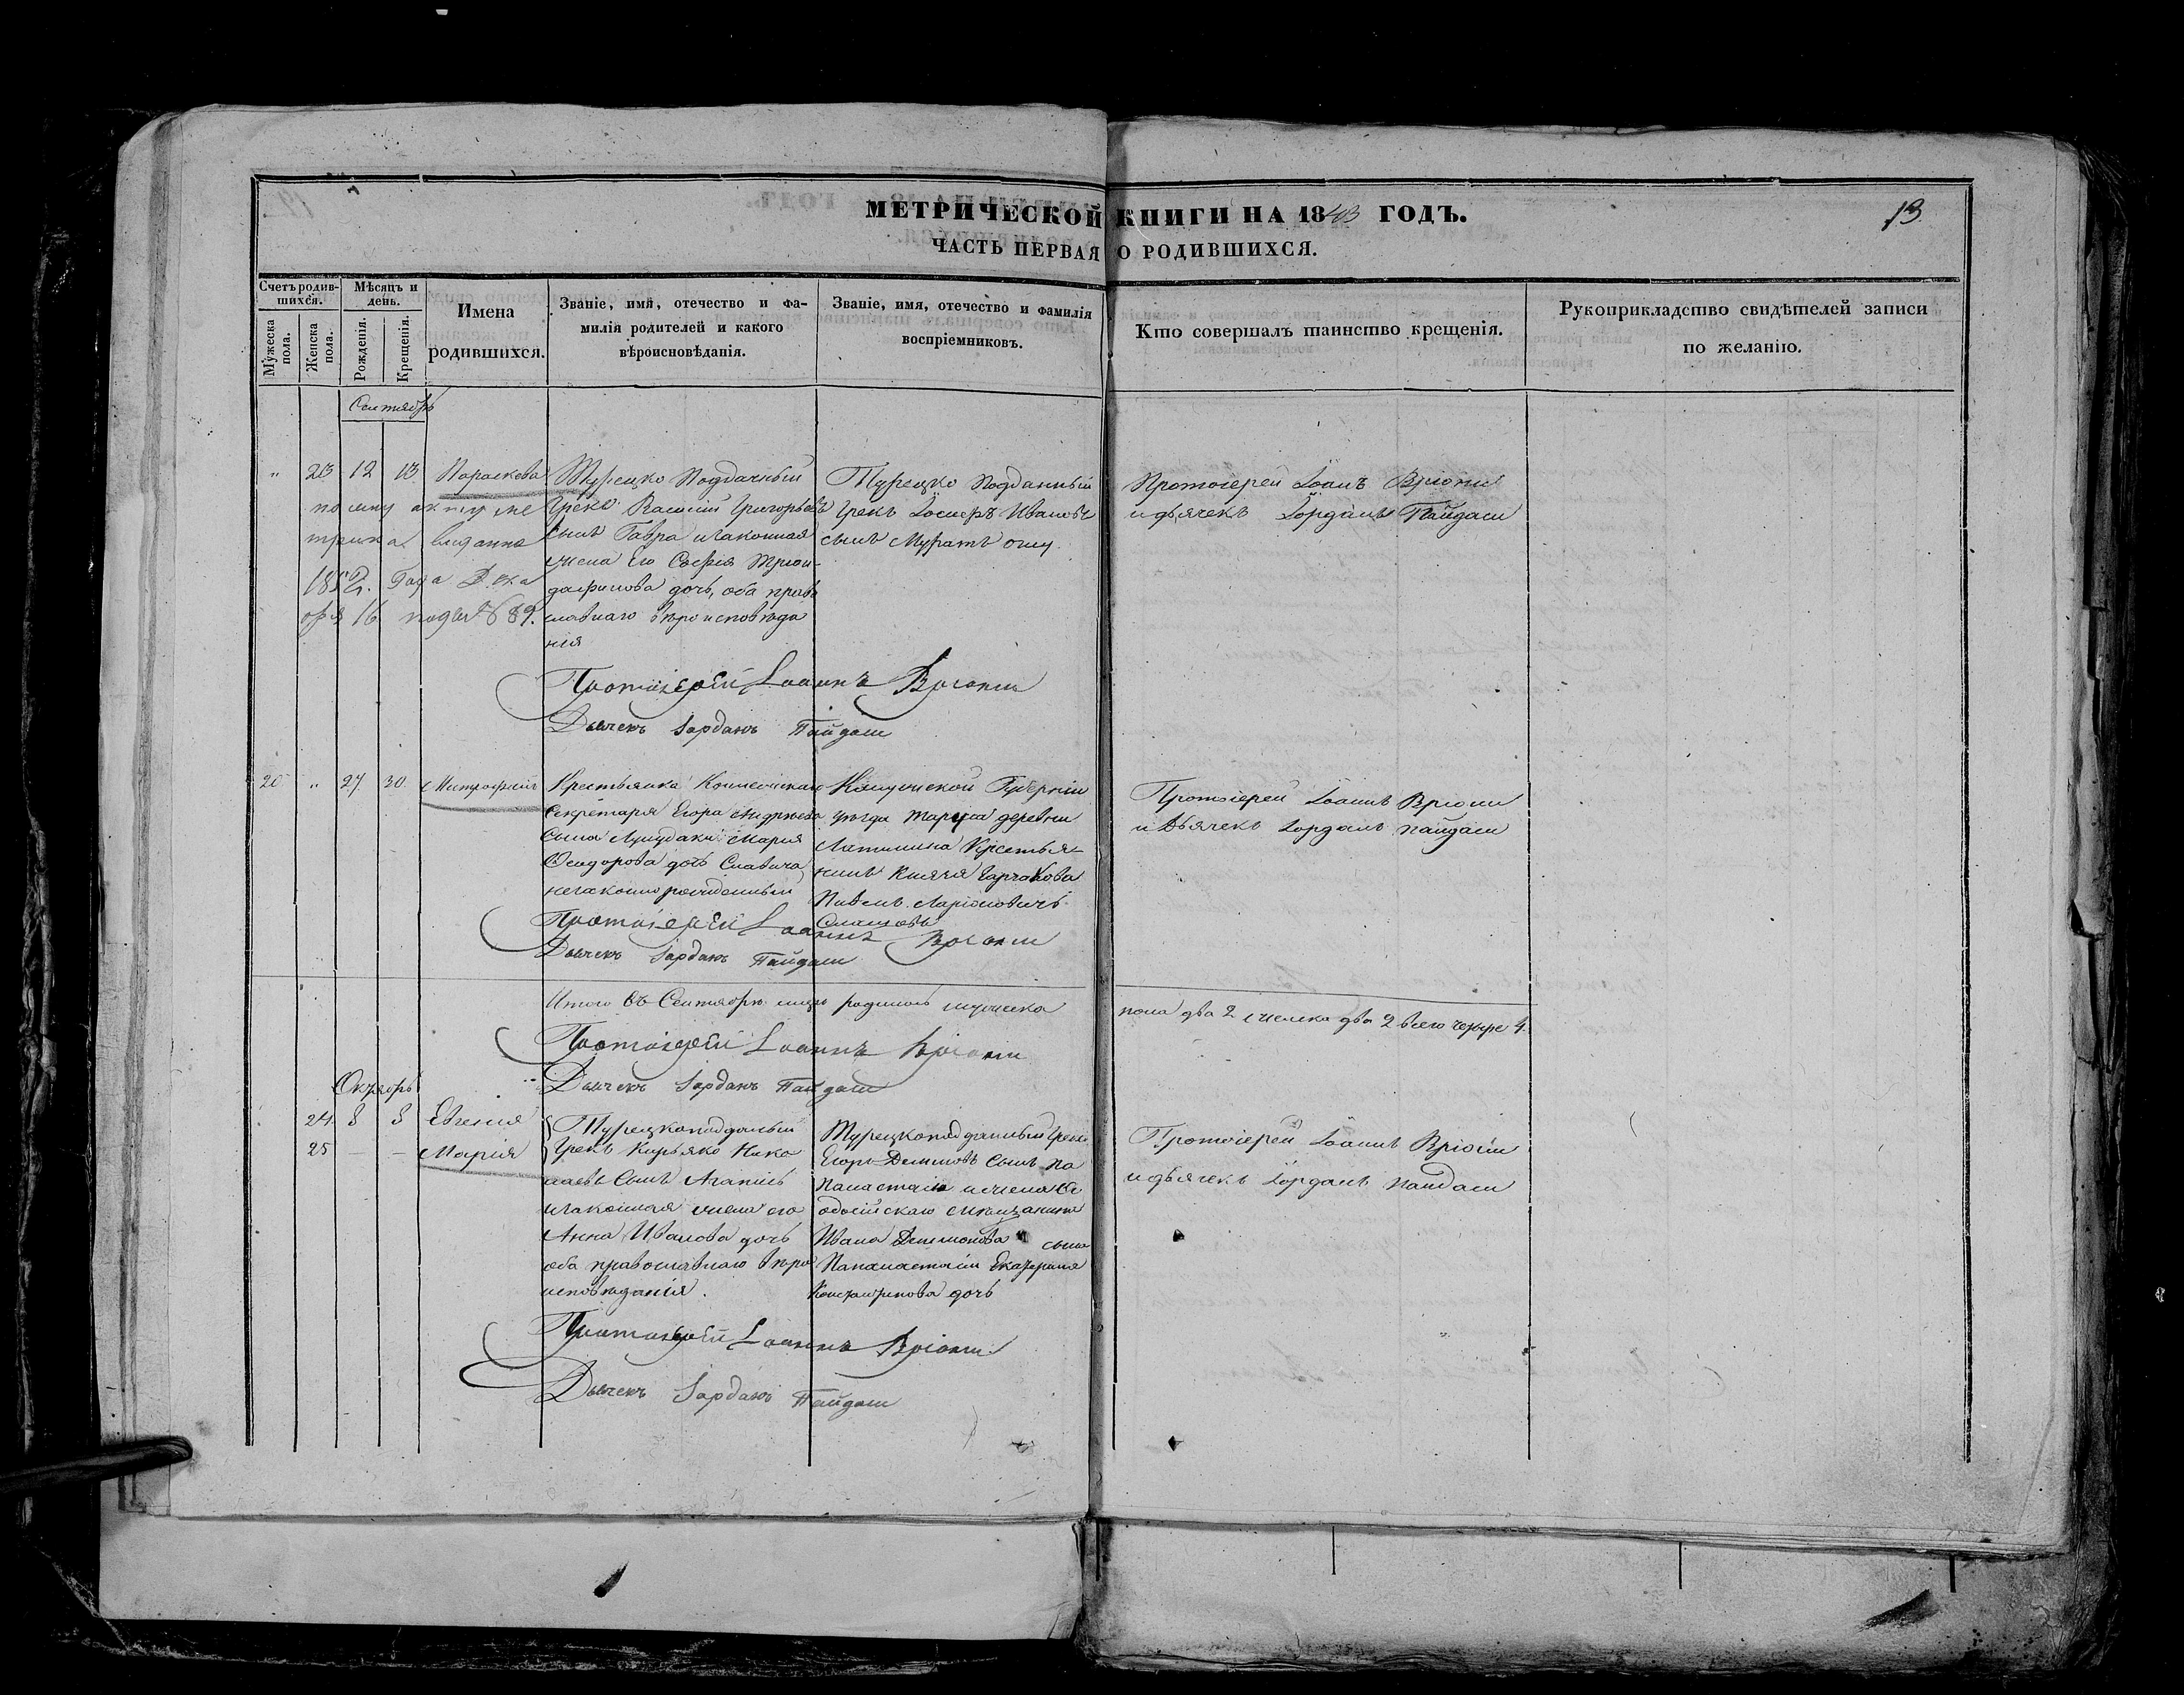 МЕТРИЧЕСКОЙ КНИГИ НА 1843 ГОДЪ.
13
ЧАСТЬ ПЕРВАЯ О РОДИВШИХСЯ.
Счетъ родив-
шихся.
Мужеска пола.
Женска пола.
Мѣсяцъ и
день.
Рожденія.
Крещенія.
Имена
родившихся.
Званіе, имя, отечество и фа-
милія родителей и какого
вѣроисновѣданія.
Званіе, имя, отечество и фамилія
воспріемниковъ.
Кто совершалъ таинство крещенія.
Рукоприкладство свидѣтелей записи
по желанію.
Сентябрь
" 23 12 13 Параскева
по сему акту ме
трика выдана
1852. Года
16 подъ № 689.
Турецко Подданный
Грекъ Василій Григорьевъ
сынъ Гавра и законная
жена Его Софія
дафилова дочь, оба право
славнаго вѣроисповѣда
нія
Турецко подданный
Грекъ Іосифъ Ивановъ
сынъ Муратъ оглу
Протоіерей Іоанъ Вріони
и дьячекъ Іорданъ Пайдаси
Протоіерей Іоаннъ Вріони
Дьячекъ Іорданъ Пайдаси
20 " 27 30 Митрофанъ
Крестьянка
Секретаря Егора Андреева
сына Мария
Феодорова дочь
незаконнорожденный
Калужской Губерніи
уѣзда Таруса деревни
Крестья-
нинъ Князя Горчакова
Павелъ Ларіоновичъ
Протоіерей Іоаннъ Вріони
и Дьячекъ Іорданъ Пайдаси
Протоіерей Іоаннъ Вріони
Дьячекъ Іорданъ Пайдаси
Итого въ Сентябрѣ родилось мужеска
пола два 2 женска два 2 всего четыре 4.
Протоіерей Іоаннъ Вріони
Дьячекъ Іорданъ Пайдаси
Октябрь
24 8 8 Евгенія
25 — — Марія
Турецкоподданый
Грекъ Кирьяко Нико
лаевъ Сынъ
и законная жена его
Анна Иванова дочь
оба православнаго вѣро
исповѣданія.
Турецкоподданный Грекъ
Егоръ Демьновъ сынъ Па
панастаси и жена Ѳе
одосійскаго мѣщанина
Ивана Демьнова сына
Папанастаси Екатерина
Константинова дочь
Протоіерей Іоаннъ Вріони
и дьячекъ Іорданъ Пайдаси
Протоіерей Іоаннъ Вріони
Дьячекъ Іорданъ Пайдаси